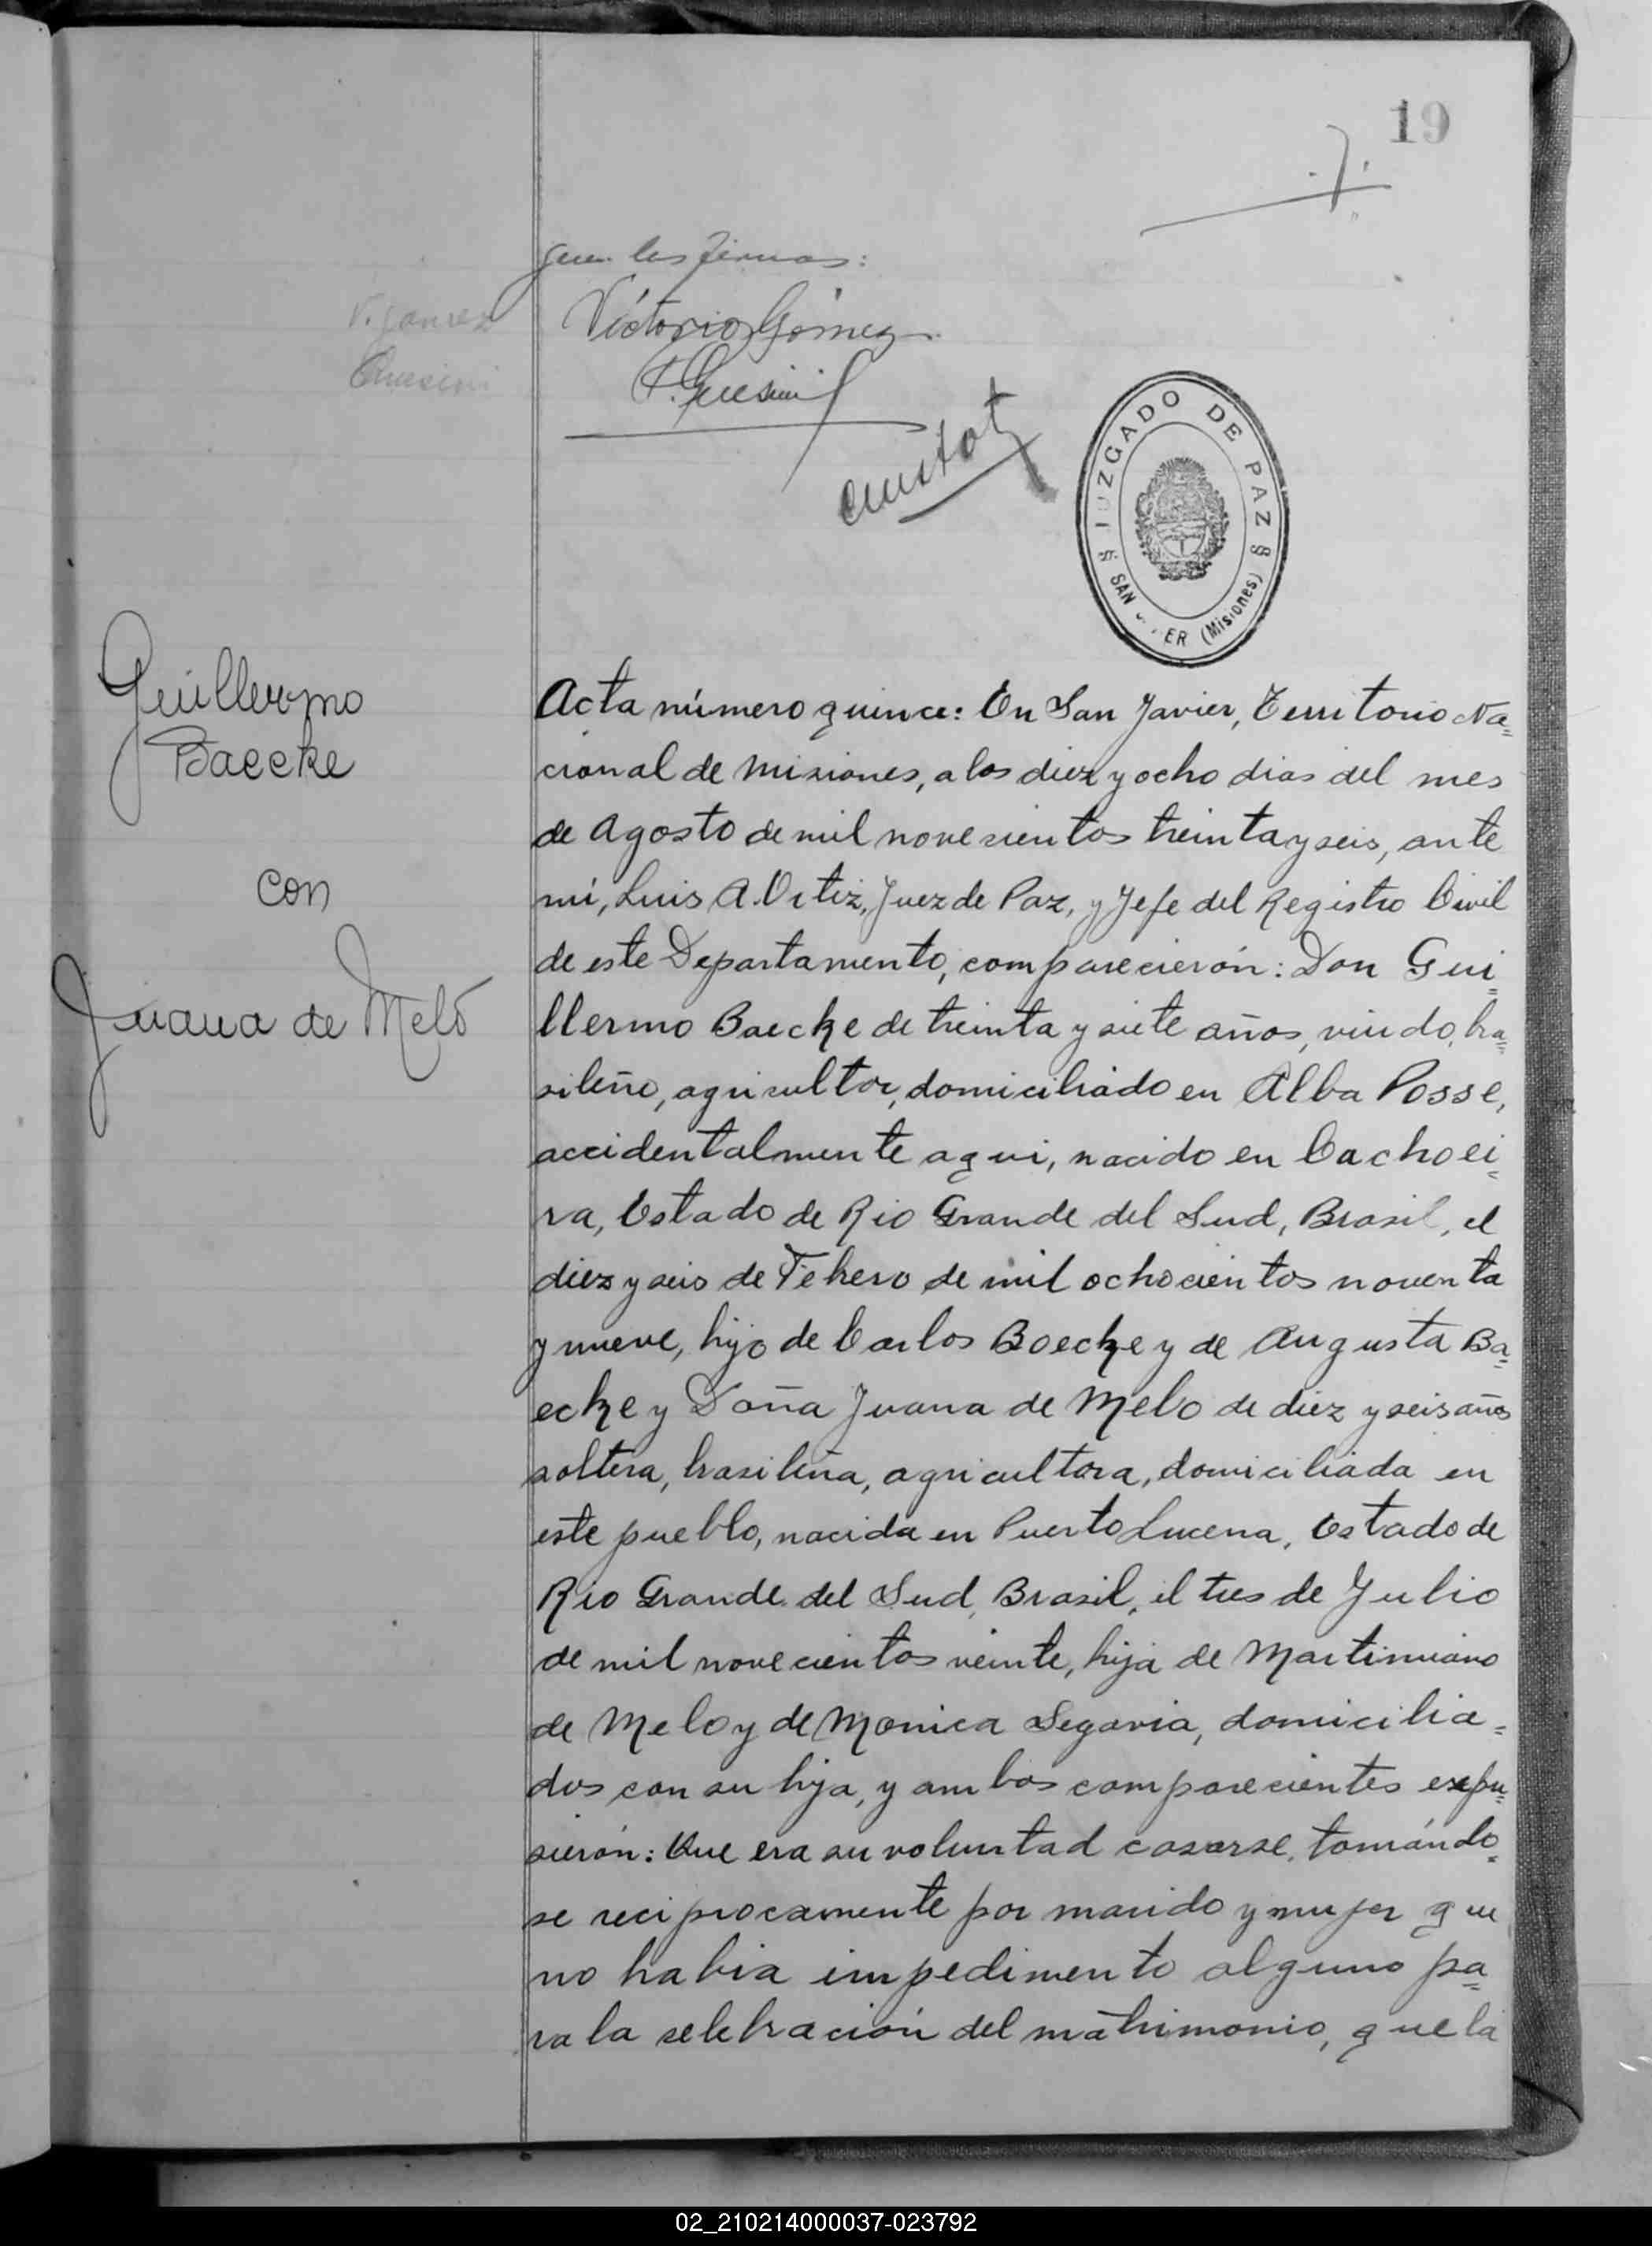 19
guen las firmas:
V. Gomez
Victorio Gómez
JUZGADO DE PAZ
SAN   ER (Misiones)
Guillermo
Baecke
con
Juana de Meló
Acta número quince: En San Javier, Territorio Na=
cional de Misiones, a los diez y ocho dias del mes
de Agosto de mil novesientos treinta y seis, ante
mi, Luis A. Ortiz, Juez de Paz, y Jefe del Registro Civil
de este Departamento, comparecierón: Don Gui=
llermo Baecke de treinta y siete años, viudo, bra=
sileño, agricultor, domiciliádo en Alba Posse,
accidentalmente aqui, nacido en Cachoei=
ra, Estado de Rio Grande del Sud, Brasil, el
diez y seis de Febero de mil ochocientos noventa
y nueve, hijo de Carlos Boecke y de Augusta Ba=
ecke y Doña Juana de Melo de diez y seis años
soltera, brasileña, agricultora, domiciliada en
este pueblo, nacida en Puerto Lucena, Estado de
Rio Grande del Sud, Brasil, el tres de Julio
de mil novecientos veinte, hija de Martimiano
de Melo y de Monica Segovia, domicilia=
dos con su hija, y ambos comparecientes expu=
sierón: Que era su voluntad casarse, tomándo=
se reciprocamente por marido y mujer que
no habia impedimento alguno pa=
ra la selebración del matrimonio, que la
02_210214000037-023792